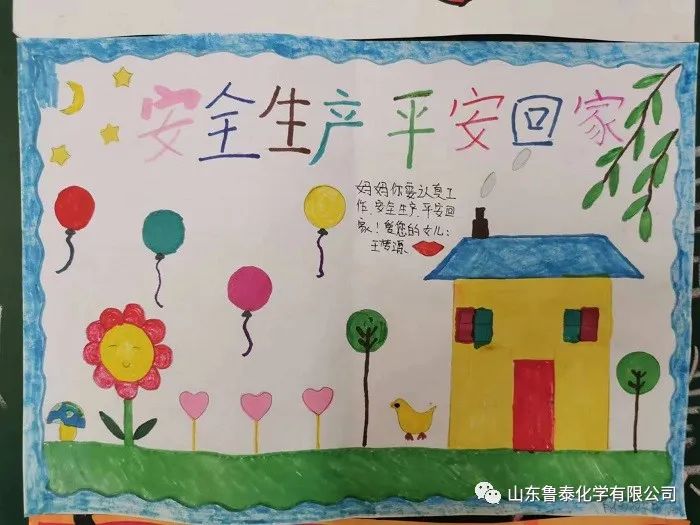 安全生产平安回家
妈妈你要认真工
作、安全生产、平安回
家！爱您的女儿：
王梦源
山东鲁泰化学有限公司